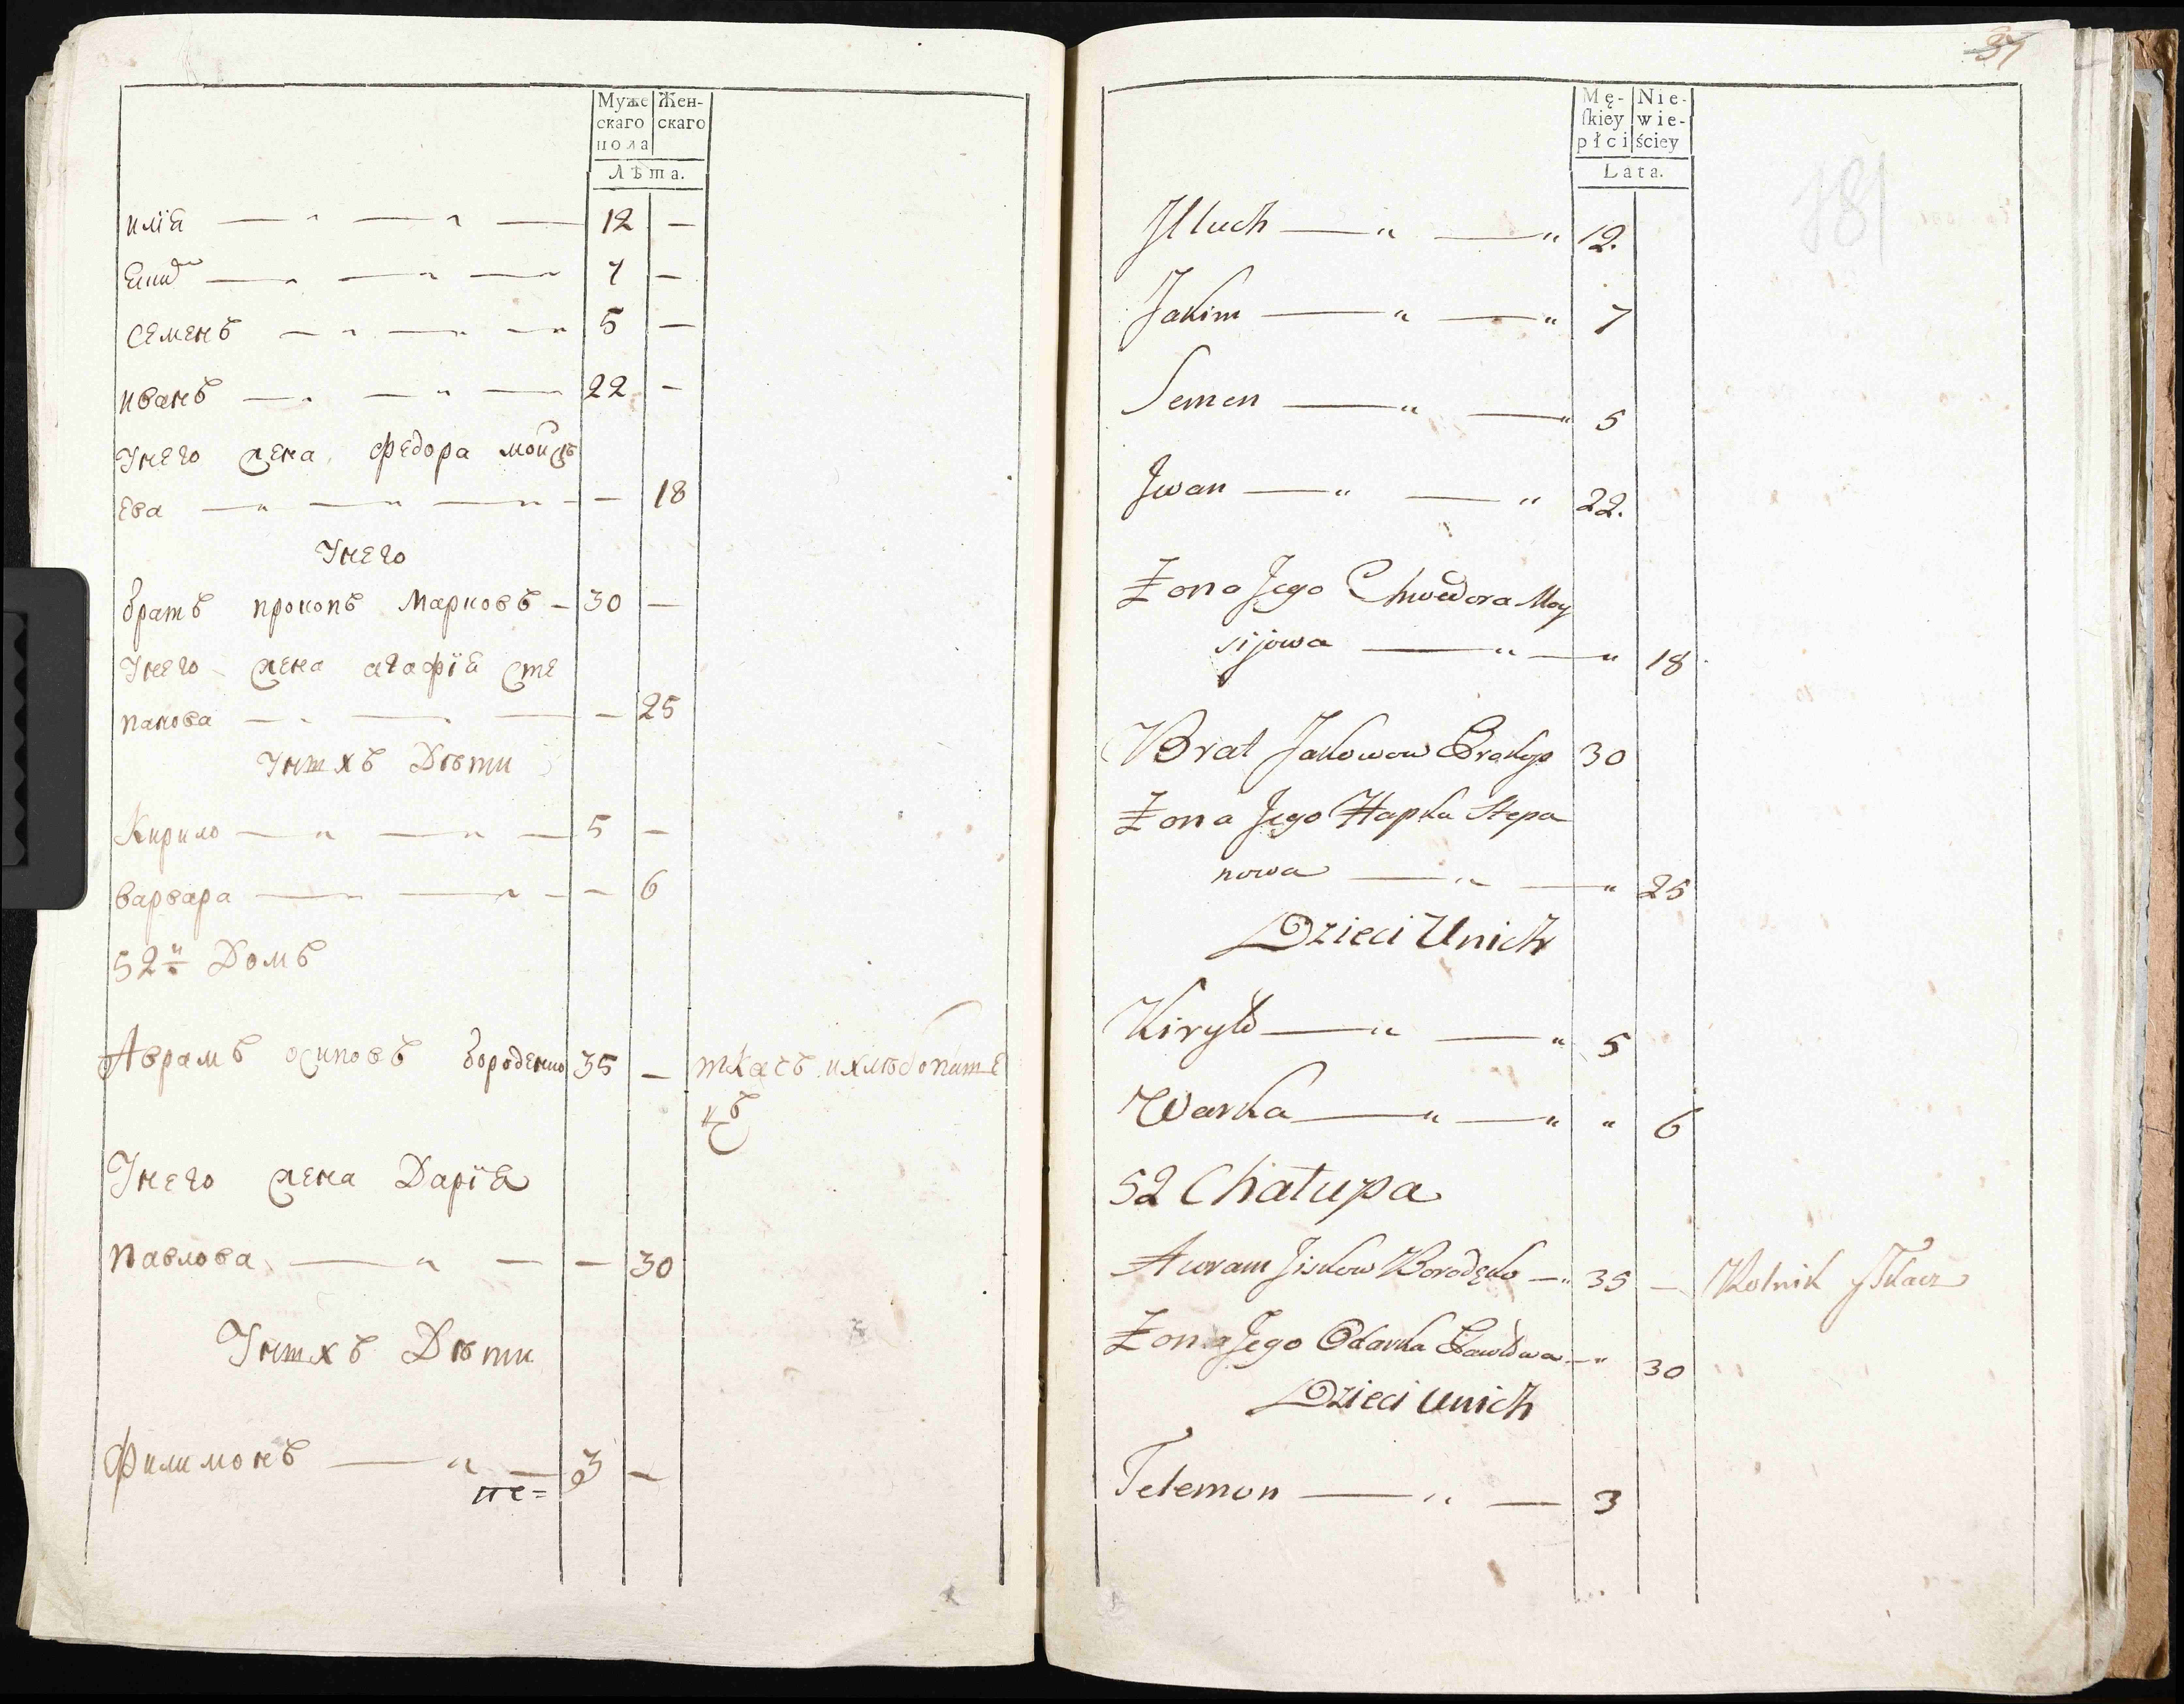 Муже
скаго
пола
Жен-
скаго
Лѣта.
илїя — " — " — 12 —
— " — " — " 7 —
семенъ — " — " — " 5 —
иванъ — " — " — 22 —
Унего жена федора моисѣ
ева — " — " — " — — 18
Унего
братъ прокопъ Марковъ — 30 —
Унего жена агафїя сте
панова — " — " — — 25
Унихъ Дѣти
Кирило — " — " — 5 —
варвара — " — " — — 6
52й Домъ
Аврамъ осиповъ бороденко 35 — ткачь ихлѣбопаше
цъ
Унего жена Дарїя
Павлова — " — — 30
Унихъ Дѣти
Филимонъ — " — 3 —
пе=
37
181
Mę-
ſkiey
płci
Nie-
wie-
ściey
Lata.
Jlluch — " — " 12.
Jakim — " — " 7
Semen — " — " 5
Jwan — " — " 22.
Żona Jego Chwedora Moy
sijowa — " — " 18
Brat Jakowow Prokop 30
Żona Jego Hapka Stepa
nowa — " — " 25
Dzieci Unich
Kiryło — " — " 5
Warka — " — " " 6
52 Chałupa
Awram Jiskow Borodęko — " 35 — Rolnik y Tkacz
Żona Jego Odarka Pawłowa — " 30
Dzieci Unich
Telemon — " — 3